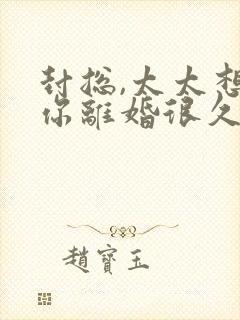 封总,太太想
你離婚很久
趙寶玉